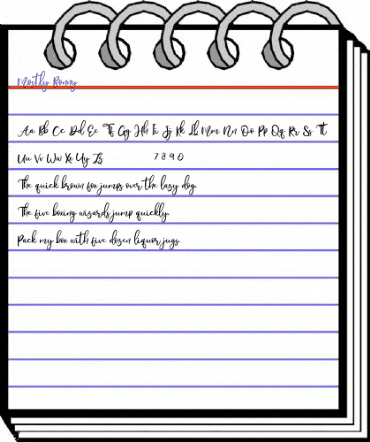 Mostly Ronny
Aa Bb Cc Dd Ee Ff Gg Hh Ii Jj Kk Ll Mm Nn Oo Pp Qq Rr Ss Tt
Uu Vv Ww Xx Yy Zz 7 8 9 0
The quick brown fox jumps over the lazy dog.
The five boxing wizards jump quickly.
Pack my box with five dozen liquor jugs.